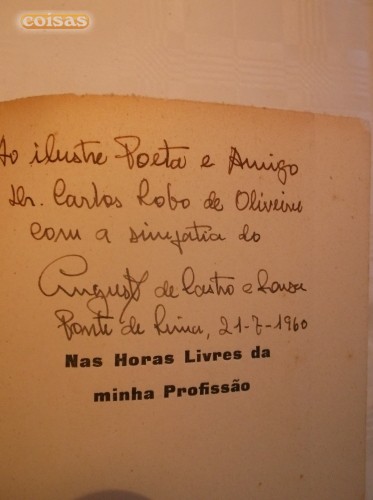 coisas
Ao ilustre Poeta e Amigo
Dr. Carlos Lobo de Oliveira
com a simpatia do
Augusto de Castro e Sousa
Ponte de Lima, 21-7-1960
Nas Horas Livres da
minha Profissão